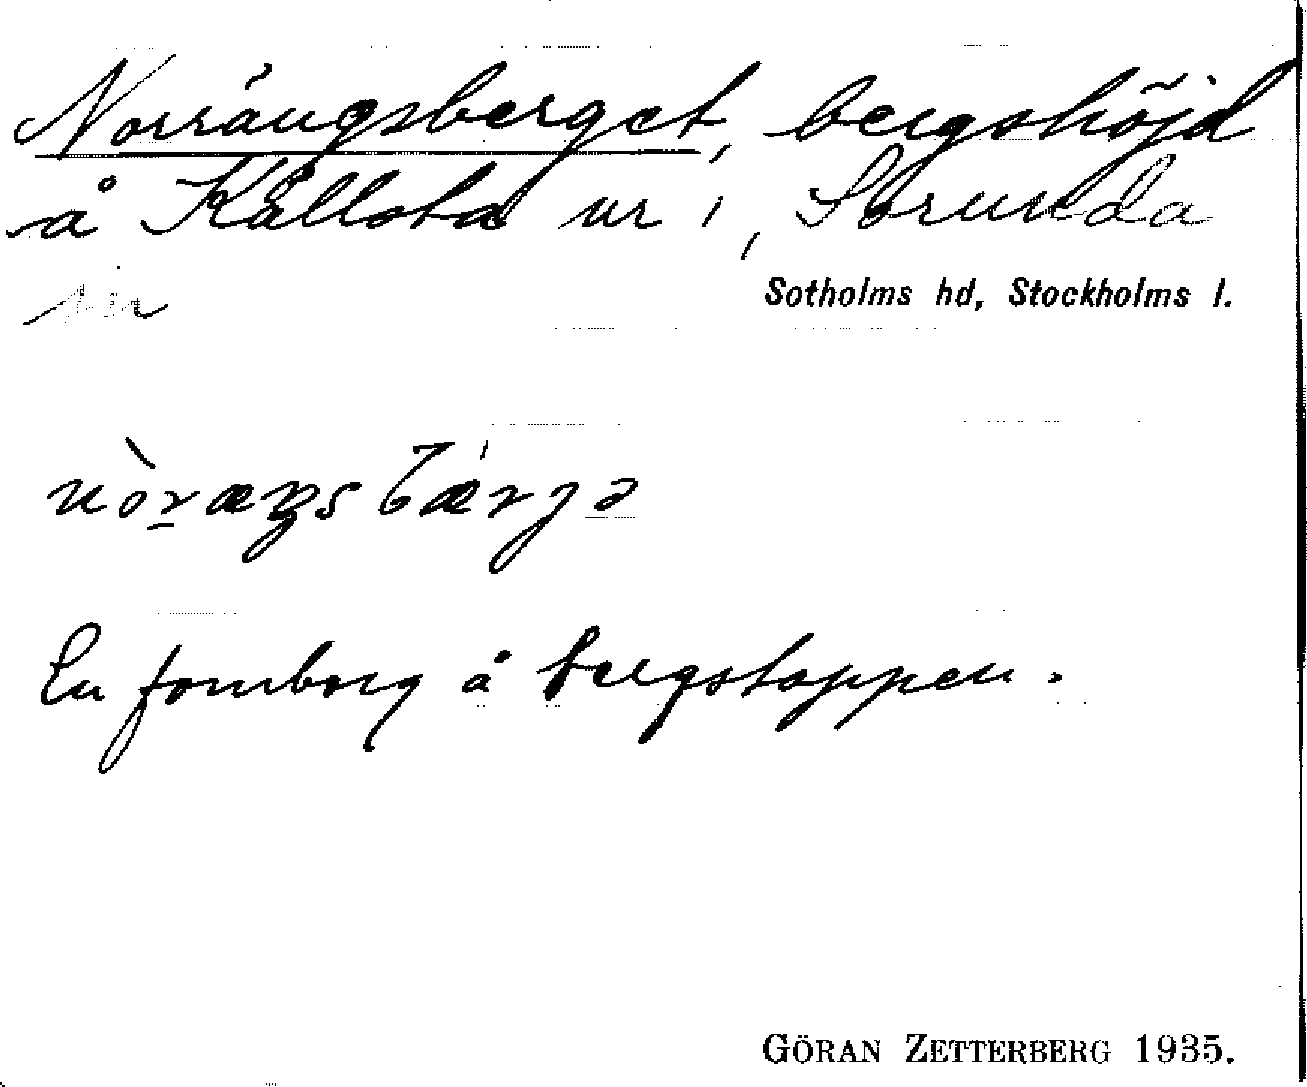 Norrängsberget, bergshöjd
å Källsta nr 1, Sorunda
sn
Sotholms hd, Stockholms l.
En fornborg å bergstoppen.
GÖRAN ZETTERBERG 1935.